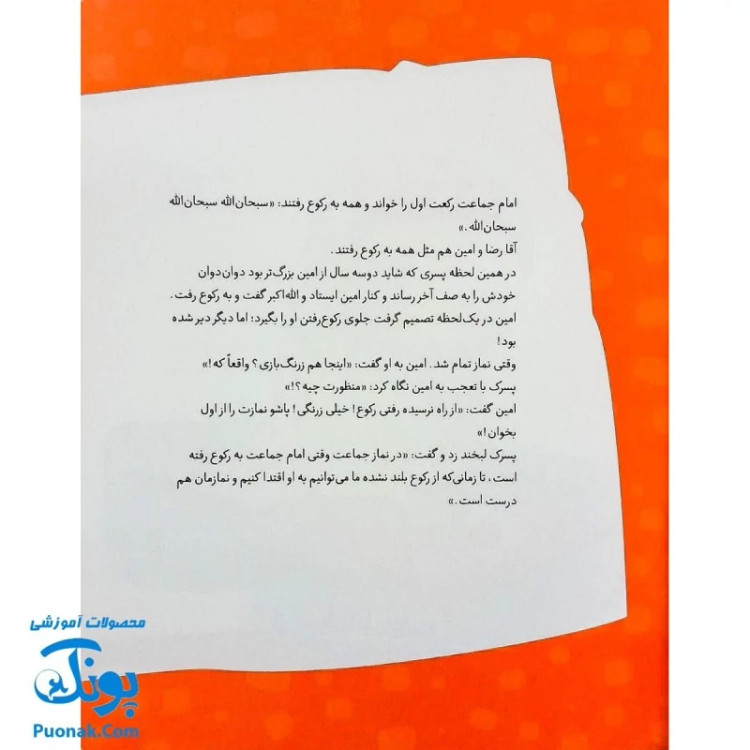 امام جماعت رکعت اول را خواند و همه به رکوع رفتند: «سبحان‌الله سبحان‌الله
سبحان‌الله.»
آقا رضا و امین هم مثل همه به رکوع رفتند.
در همین لحظه پسری که شاید دوسه سال از امین بزرگ‌تر بود دوان‌دوان
خودش را به صف آخر رساند و کنار امین ایستاد و الله‌اکبر گفت و به رکوع رفت.
امین در یک‌لحظه تصمیم گرفت جلوی رکوع‌رفتن او را بگیرد؛ اما دیگر دیر شده
بود!
وقتی نماز تمام شد. امین به او گفت: «اینجا هم زرنگ‌بازی؟ واقعاً که!»
پسرک با تعجب به امین نگاه کرد: «منظورت چیه؟!»
امین گفت: «از راه نرسیده رفتی رکوع! خیلی زرنگی! پاشو نمازت را از اول
بخوان!»
پسرک لبخند زد و گفت: «در نماز جماعت وقتی امام جماعت به رکوع رفته
است، تا زمانی‌که از رکوع بلند نشده ما می‌توانیم به او اقتدا کنیم و نمازمان هم
درست است.»
محصولات آموزشی
پونک
Puonak.Com